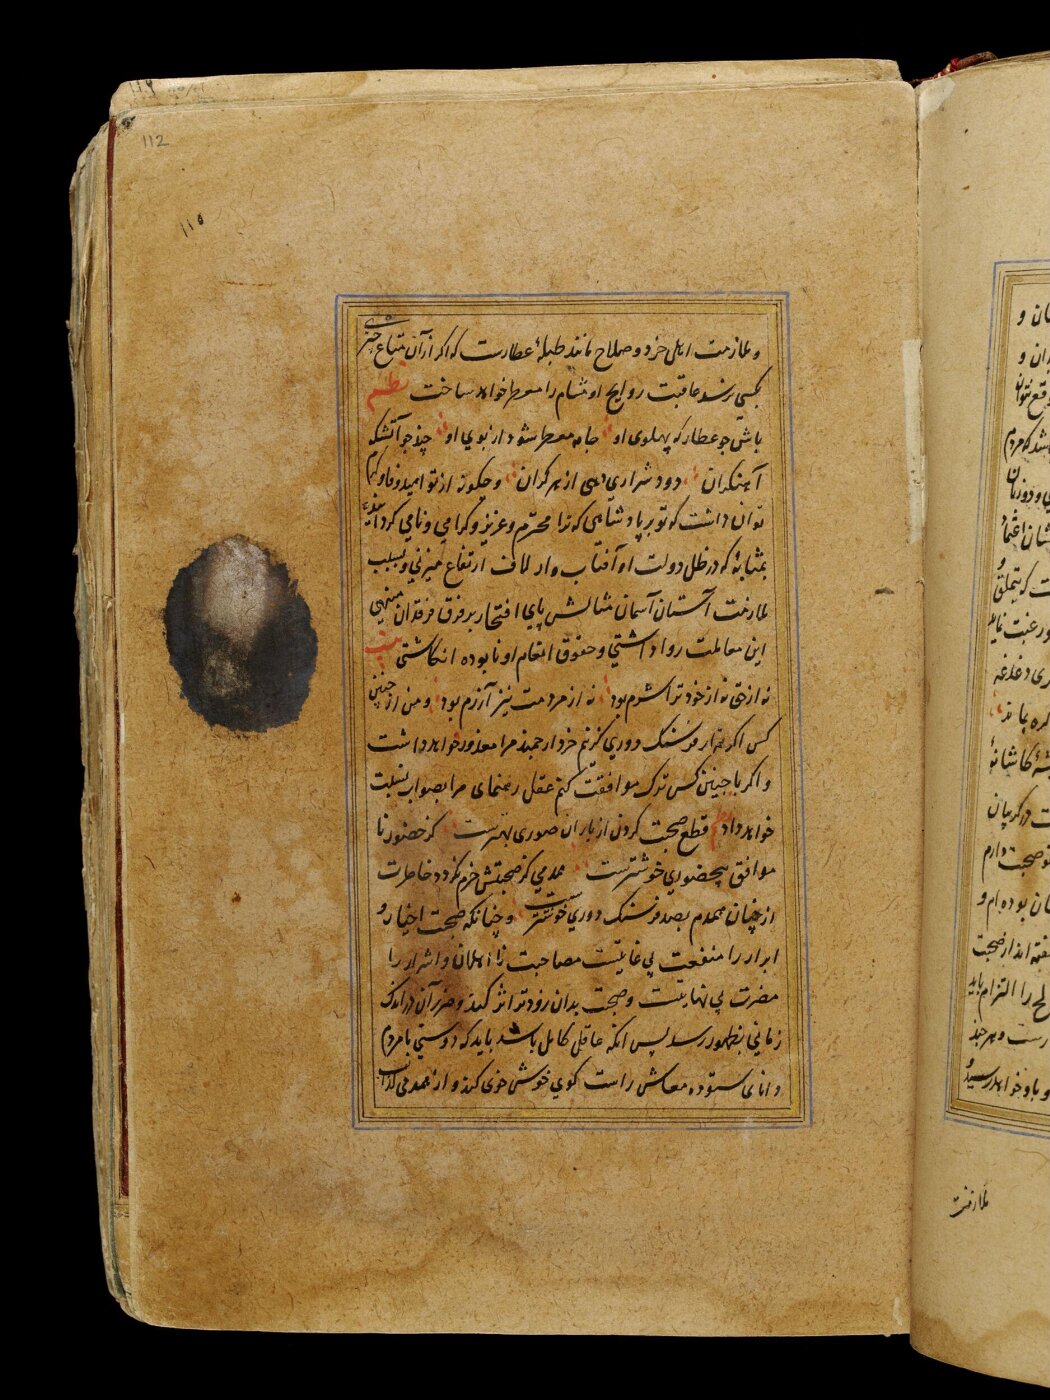 112
۱۱۵
و ملازمت اهل خرد و صلاح مانند طبلهٔ عطارست که اگر از آن متاع چیزی
بکسی نرسد عاقبت روایح او مشام را معطر خواهد ساخت نظم
باش چو عطار که پهلوی او جامه معطر شود از بوی او چند چو آتشکده
آهنگران دود شراری دهی از هر کران و چگونه از تو امید وفا و کرم
توان داشت که تو بر پادشاهی که ترا محترم و عزیز و گرامی و نامی گردانیده
بمثابهٔ که در ظل دولت او آفتاب وار لاف ارتفاع میزنی و بسبب
ملازمت آستان آسمان مثالش پای افتخار بر فرق فرقدان مینهی
این معاملت روا داشتی و حقوق انعام او نابوده انگاشتی بیت
نه از حق نه از خود ترا شرم بود نه از مردمت نیز آزرم بود و من از چنین
کس اگر هزار فرسنگ دوری گزینم خرد ارجمند مرا معذور خواهد داشت
و اگر با چنین کس ترک موافقت کنم عقل رهنمای مرا بصواب نسبت
خواهد داد قطع صحبت کردن از یاران صوری بهترست کز حضور نا
موافق بیحضوری خوشترست همدمی کز صحبتش خرم نگردد خاطرت
از چنان همدم بصد فرسنگ دوری خوشترست و چنانکه صحبت اخیار و
ابرار را منفعت بی غایتست مصاحبت نا اهلان و اشرار را
مضرت بی نهایتست و صحبت بدان زودتر اثر کند و ضرر آن در اندک
زمانی بظهور رسد پس آنکه عاقل کامل باشد باید که دوستی با مردم
دانای ستوده معاش راست گوی خوش خوی کند و از همدمی کذاب
ملازمت